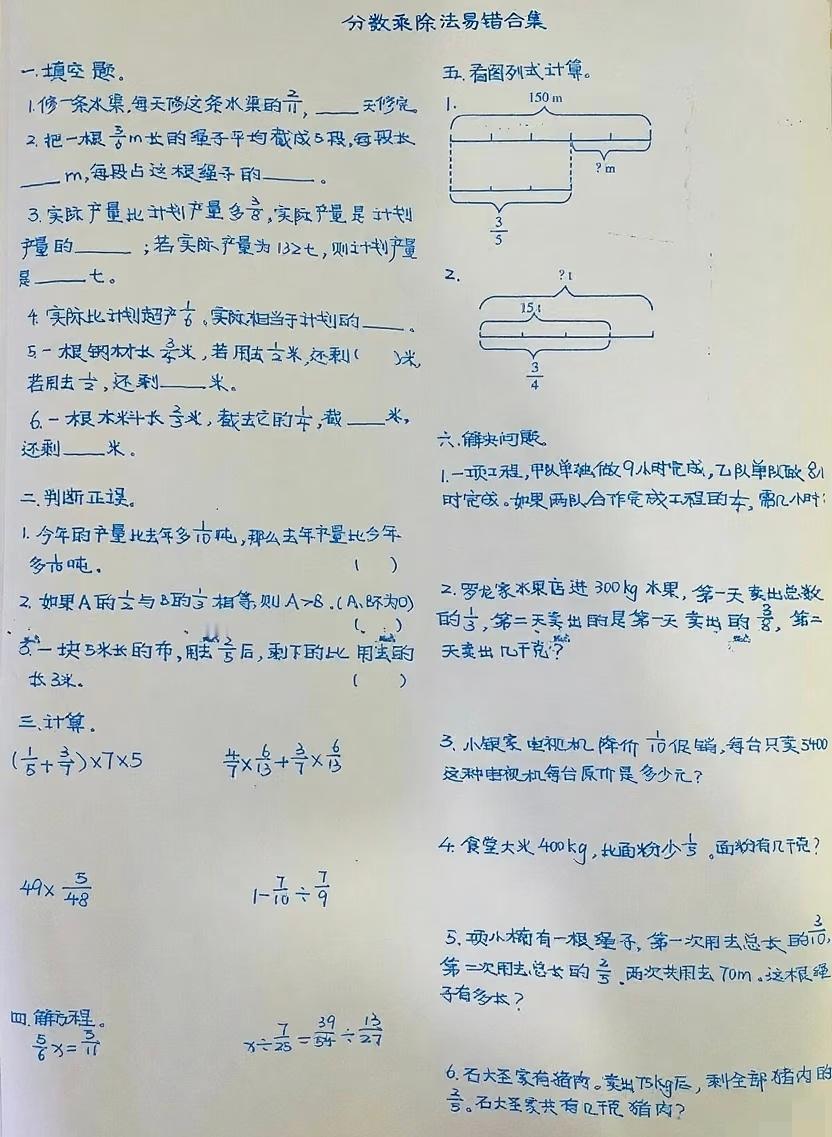 分数乘除法易错合集
一.填空题。
1.修一条水渠,每天修这条水渠的2/11, ____天修完
2.把一根3/6m长的绳子平均截成5段,每段长
____m,每段占这根绳子的____。
3.实际产量比计划产量多3/8,实际产量是计划
产量的____;若实际产量为132t,则计划产量
是____t。
4.实际比计划超产1/6。实际相当于计划的____。
5.一根钢材长3/4米,若用去1/2米,还剩( )米,
若用去1/2,还剩____米。
6.一根木料长2/3米,截去它的1/4,截____米,
还剩____米。
二.判断正误。
1.今年的产量比去年多1/10吨,那么去年产量比今年
多1/10吨。 ( )
2.如果A的1/2与B的1/3相等,则A>B.(A、B不为0)
( )
3.一块5米长的布,用去3/5后,剩下的比用去的
长3米。 ( )
三.计算。
(1/5+3/7)×7×5 4/7×6/13+3/7×6/13
49×5/48 1-7/10÷7/9
四.解方程。
5/6x=5/11 x÷7/25=39/54÷13/27
五.看图列式计算。
1.
150 m
? m
3/5
2.
? t
15 t
3/4
六.解决问题。
1.一项工程,甲队单独做9小时完成,乙队单队做8小
时完成。如果两队合作完成工程的1/4,需几小时:
2.罗龙家水果店进300kg水果,第一天卖出总数
的1/3,第二天卖出的是第一天卖出的3/8,第二
天卖出几千克?
3.小银家电视机降价1/10促销,每台只卖5400
这种电视机每台原价是多少元?
4.食堂大米400kg,比面粉少1/5。面粉有几千克?
5.小楠有一根绳子,第一次用去总长的3/10,
第二次用去总长的2/5.两次共用去70m.这根绳
子有多长?
6.石大圣家有猪肉。卖出75kg后,剩全部猪肉的
2/5。石大圣家共有几千克猪肉?